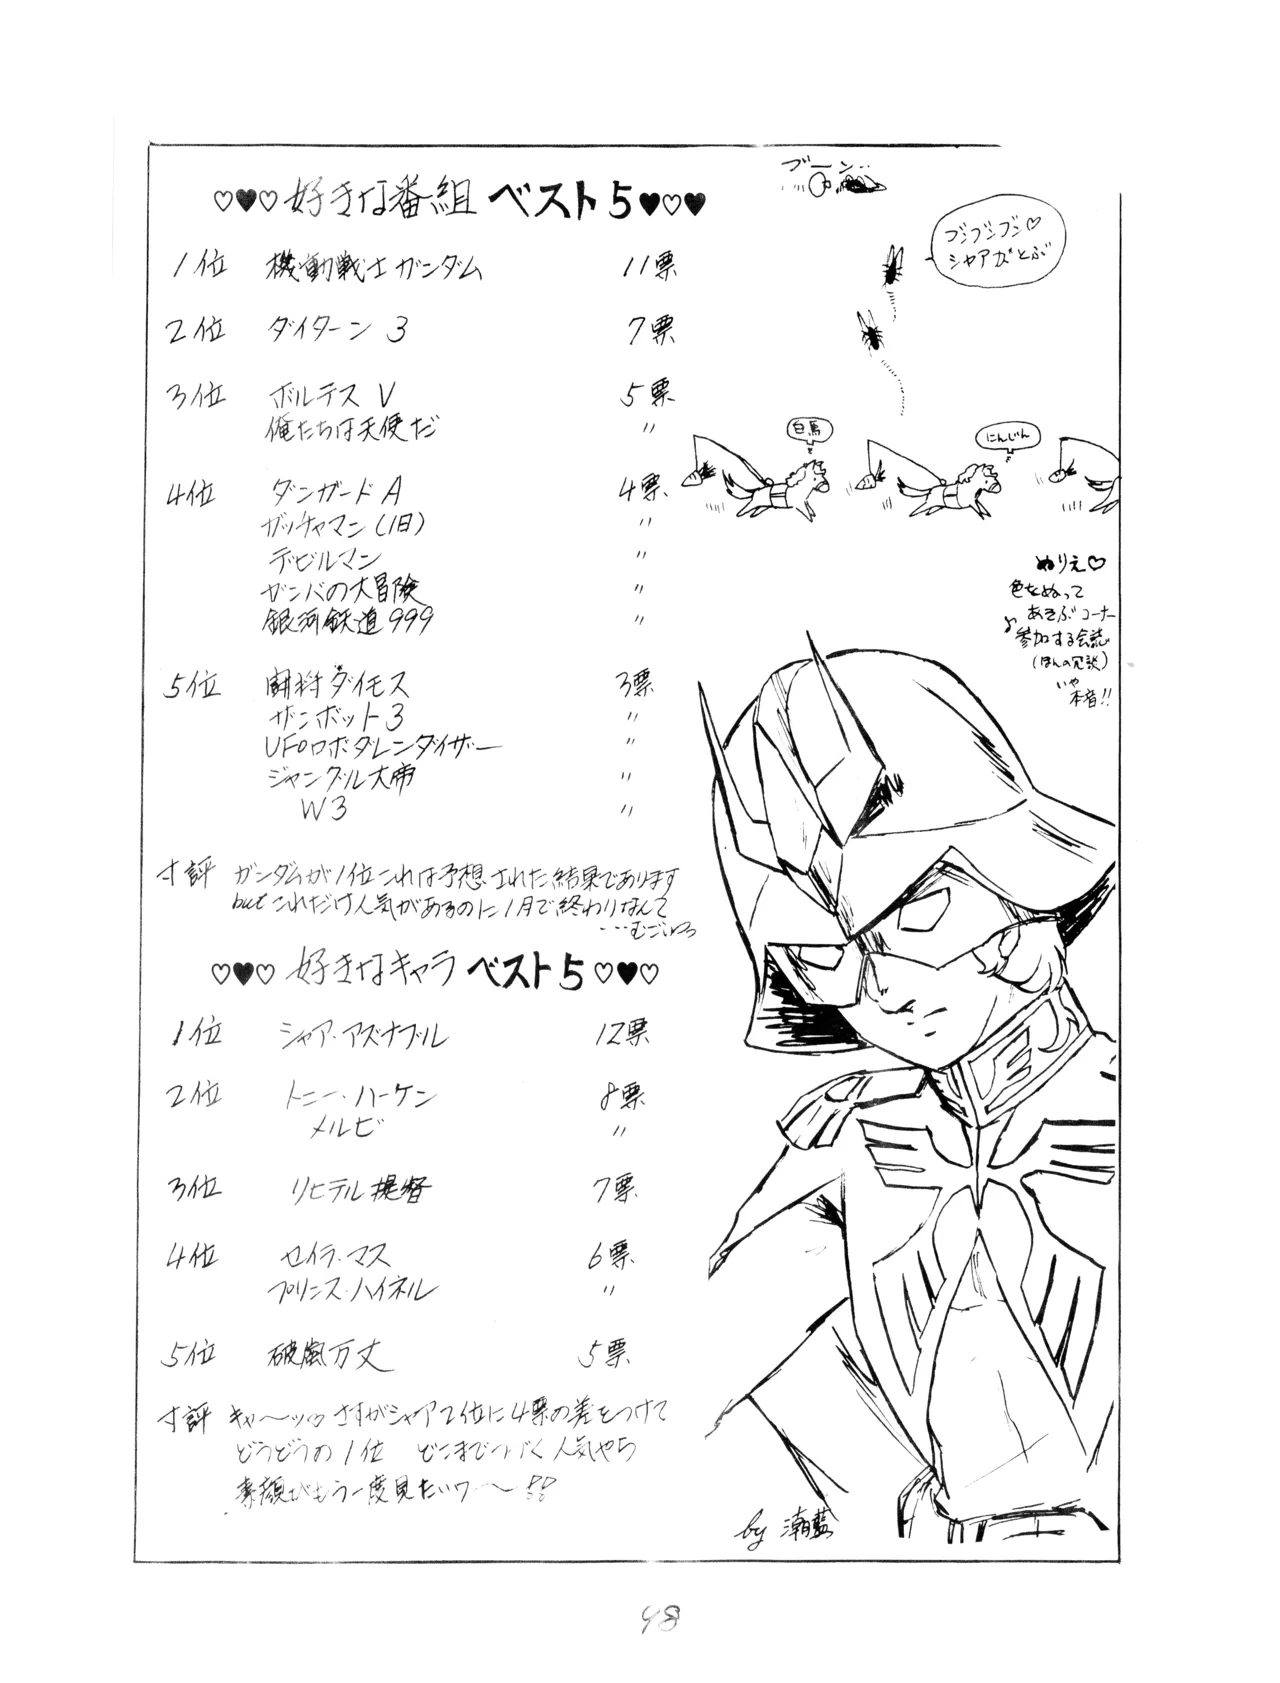 ♡♥♡ 好きな番組 ベスト5 ♥♡♥
1位 機動戦士ガンダム 11票
2位 ダイターン3 7票
3位 ボルテスV 5票
俺たちは天使だ 〃
4位 ダンガードA 4票
ガッチャマン(旧) 〃
デビルマン 〃
ガンバの大冒険 〃
銀河鉄道999 〃
5位 闘将ダイモス 3票
ザンボット3 〃
UFOロボグレンダイザー 〃
ジャングル大帝 〃
W3 〃
寸評 ガンダムが1位これは予想された結果であります
butこれだけ人気があるのに1月で終わりなんて
…むごいっ
♡♥♡ 好きなキャラ ベスト5 ♡♥♡
1位 シャア・アズナブル 12票
2位 トニー・ハーケン 8票
メルビ 〃
3位 リヒテル提督 7票
4位 セイラ・マス 6票
プリンス・ハイネル 〃
5位 破嵐万丈 5票
寸評 キャ〜ッ♡さすがシャア2位に4票の差をつけて
どうどうの1位 どこまでつづく人気やら
素顔がもう一度見たいワ〜!!
ブーン‥
ブンブンブン♡
シャアがとぶ
白馬
にんじん
ぬりえ♡
色をぬって
あそぶコーナー
参加する会誌
(ほんの冗談)
いや
本音!!
by 潮藍
48